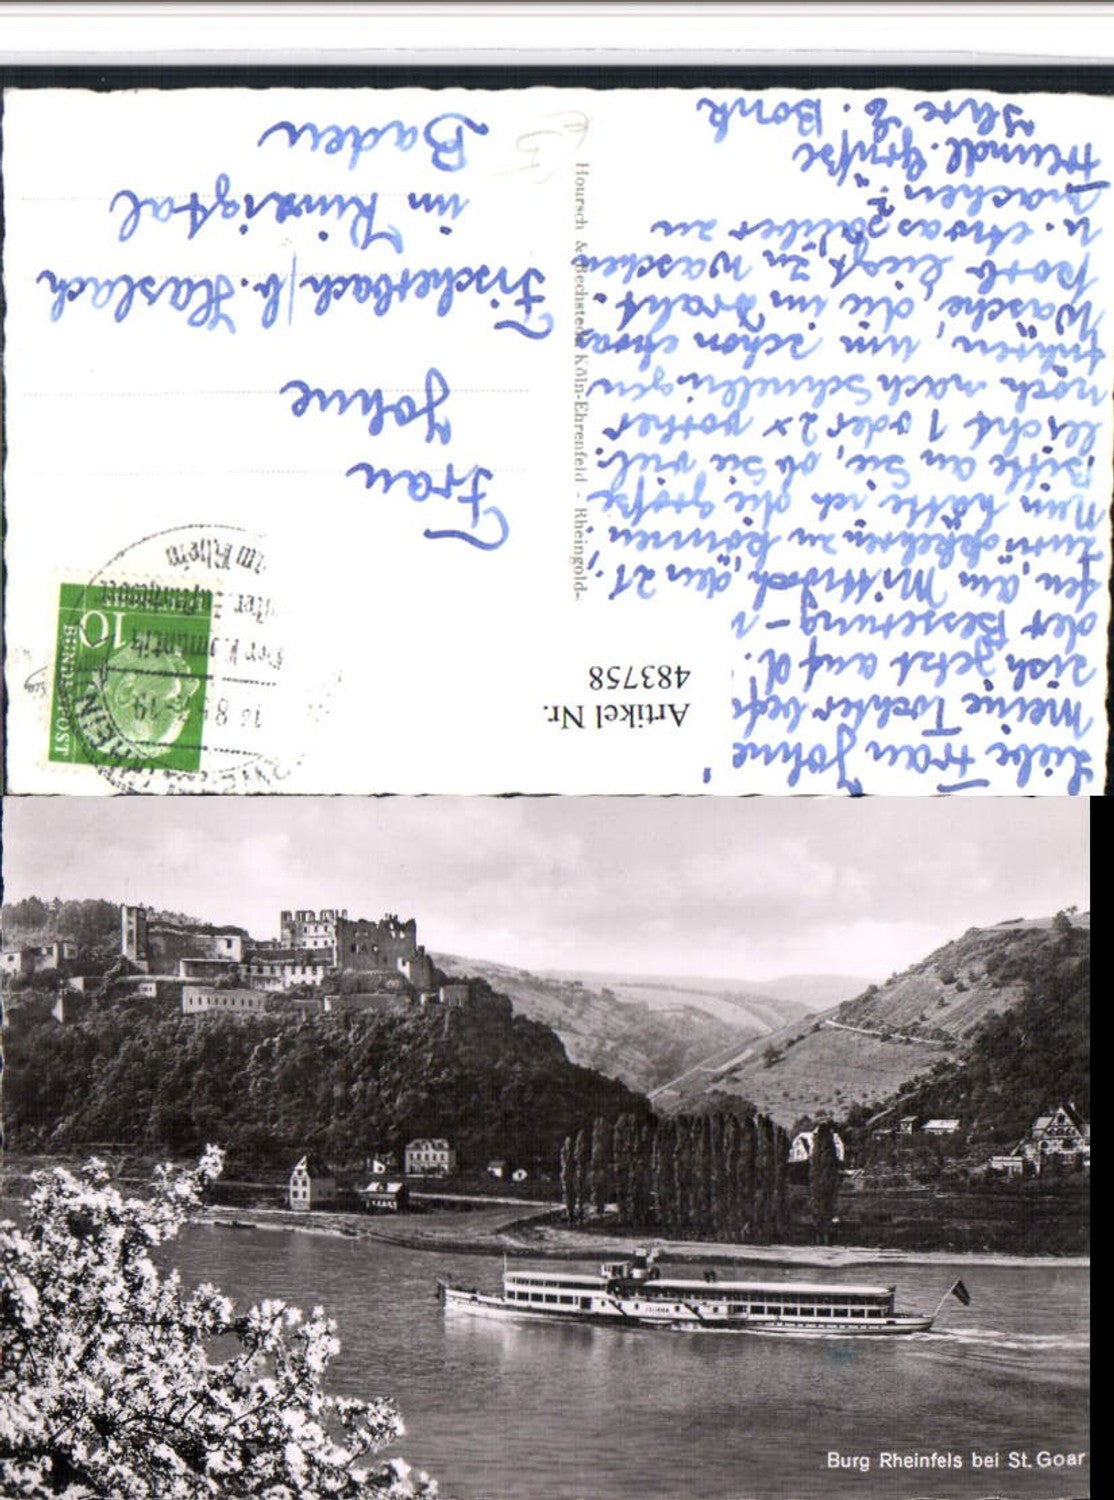 Liebe Frau Johne!
Meine Tochter befin
sich jetzt auf d.
der Besserung -
fen, am Mittwoch, den 21.,
zurückkehren zu können.
Nun hätte ich die große
Bitte an Sie, ob Sie viel-
leicht 1 oder 2x vorher
noch nach Schmelingen
führen, um schon etwas
Wäsche, die im Draht-
korb liegt, zu waschen
u. etwas sauber zu
machen.
Freundl. Grüße
Ihre E. Bonk
Artikel Nr.
483758
Hoursch & Bechstedt, Köln-Ehrenfeld - Rheingold-
10
BUNDESPOST
am Rhein
Frau
Johne
Fischerbach / b. Haslach
im Kinzigtal
Baden
Burg Rheinfels bei St. Goar